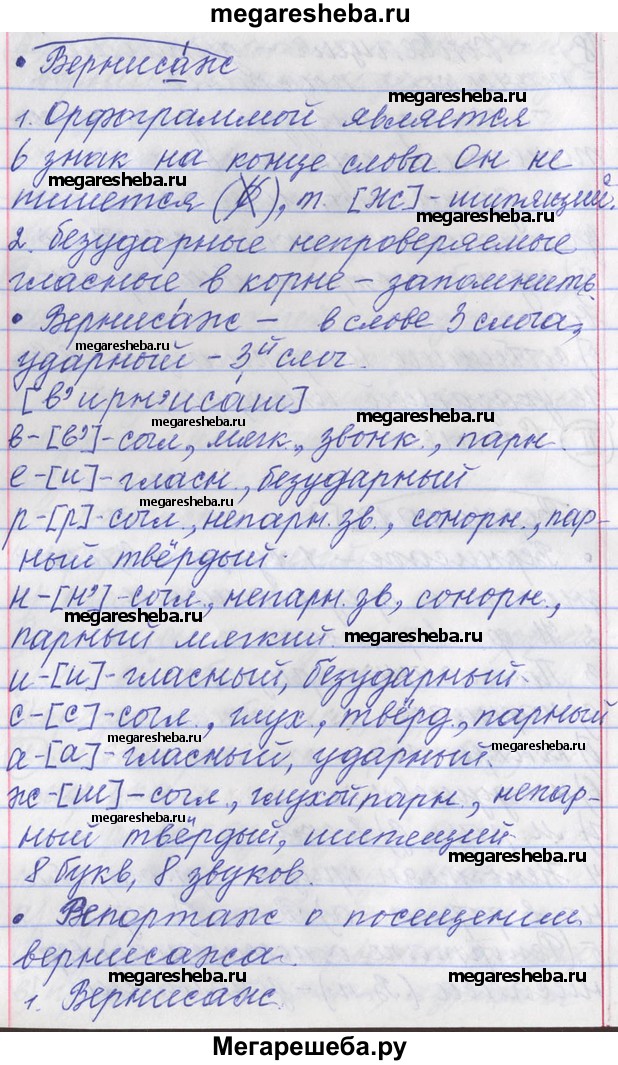 megaresheba.ru
• Верниса́ж
megaresheba.ru
1. Орфограммой является
Ь знак на конце слова. Он не
megaresheba.ru
пишется (Ь), т. [ж] - шипящий.
megaresheba.ru
2. безударные непроверяемые
гласные в корне - запомнить.
• Верниса́ж - в слове 3 слога,
megaresheba.ru
ударный - 3й слог.
[в' ирн'иса́ш]
megaresheba.ru
в-[в']-согл., мягк., звонк., парн.
е-[и]-гласн., безударный
megaresheba.ru
р-[р]-согл., непарн. зв., сонорн., пар-
ный твёрдый.
н-[н']-согл., непарн. зв., сонорн.,
megaresheba.ru
парный мягкий.
megaresheba.ru
и-[и]-гласный, безударный.
с-[с]-согл., глух., твёрд., парный
megaresheba.ru
а-[а]-гласный, ударный.
ж-[ш]-согл., глухой парн., непар-
megaresheba.ru
ный твёрдый, шипящий.
megaresheba.ru
8 букв, 8 звуков.
• Репортаж о посещении
megaresheba.ru
вернисажа.
megaresheba.ru
megaresheba.ru
1. Вернисаж.
Мегарешеба.ру